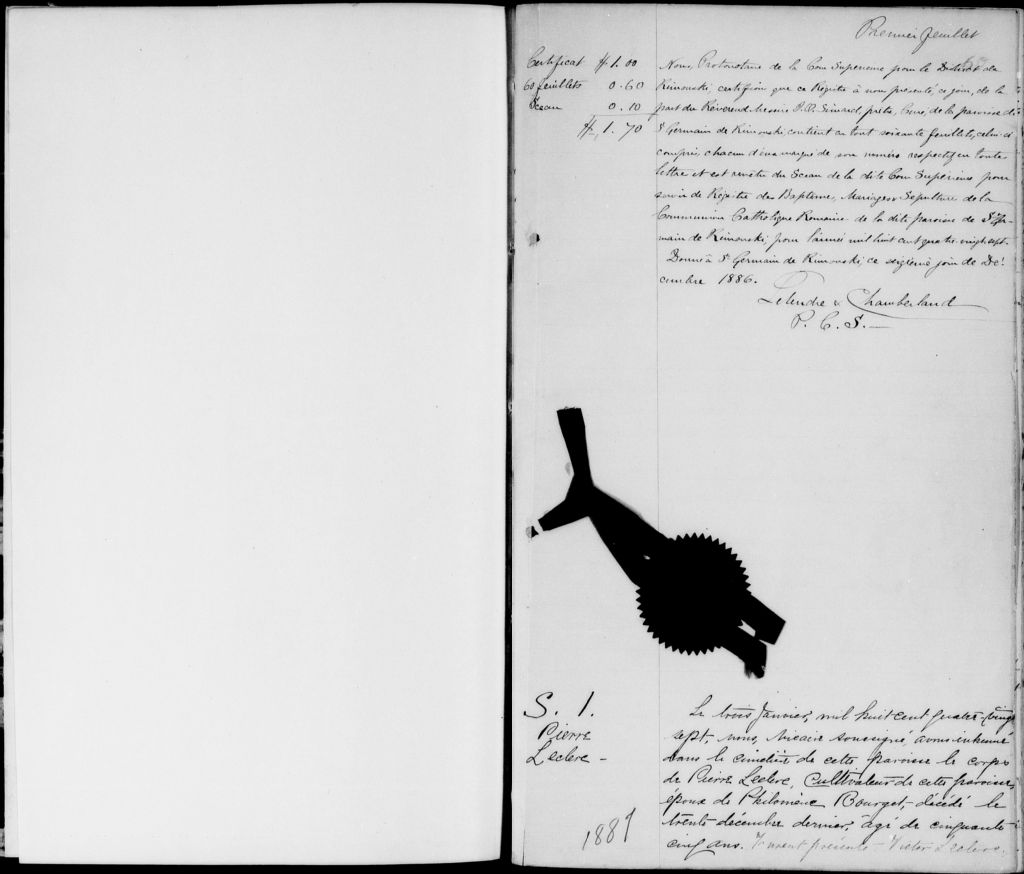 Premier feuillet
Certificat $1.00
60 feuillets 0.60
Sceau 0.10
$1.70
Nous, Protonotaire de la Cour Supérieure pour le District de
Rimouski, certifions que ce Régistre à nous présenté, ce jour, de la
part du Révérend Messire Simard, prêtre, Curé, de la paroisse de
St Germain de Rimouski, contient en tout soixante feuillets, celui-ci
compris, chacun d'eux marqué de son numéro respectif en toute
lettre et est revêtu du Sceau de la dite Cour Supérieure pour
servir de Régistre des Baptême, Mariages & Sépulture de la
Communion Catholique Romaine de la dite paroisse de St Ger-
main de Rimouski, pour l'année mil huit cent quatre-vingt-sept.
Donné à St Germain de Rimouski, ce sixième jour de Dé-
cembre 1886.
Letendre & Chamberland
P. C. S.
S. 1.
Pierre
Leclerc -
1887
Le trois Janvier, mil huit cent quatre-vingt
sept, nous, Vicaire soussigné, avons inhumé
dans le cimetière de cette paroisse le corps
de Pierre Leclerc, Cultivateur de cette paroisse,
époux de Philomène Bourget, décédé le
trente décembre dernier, âgé de cinquante
cinq ans. Furent présents - Victor Leclerc,